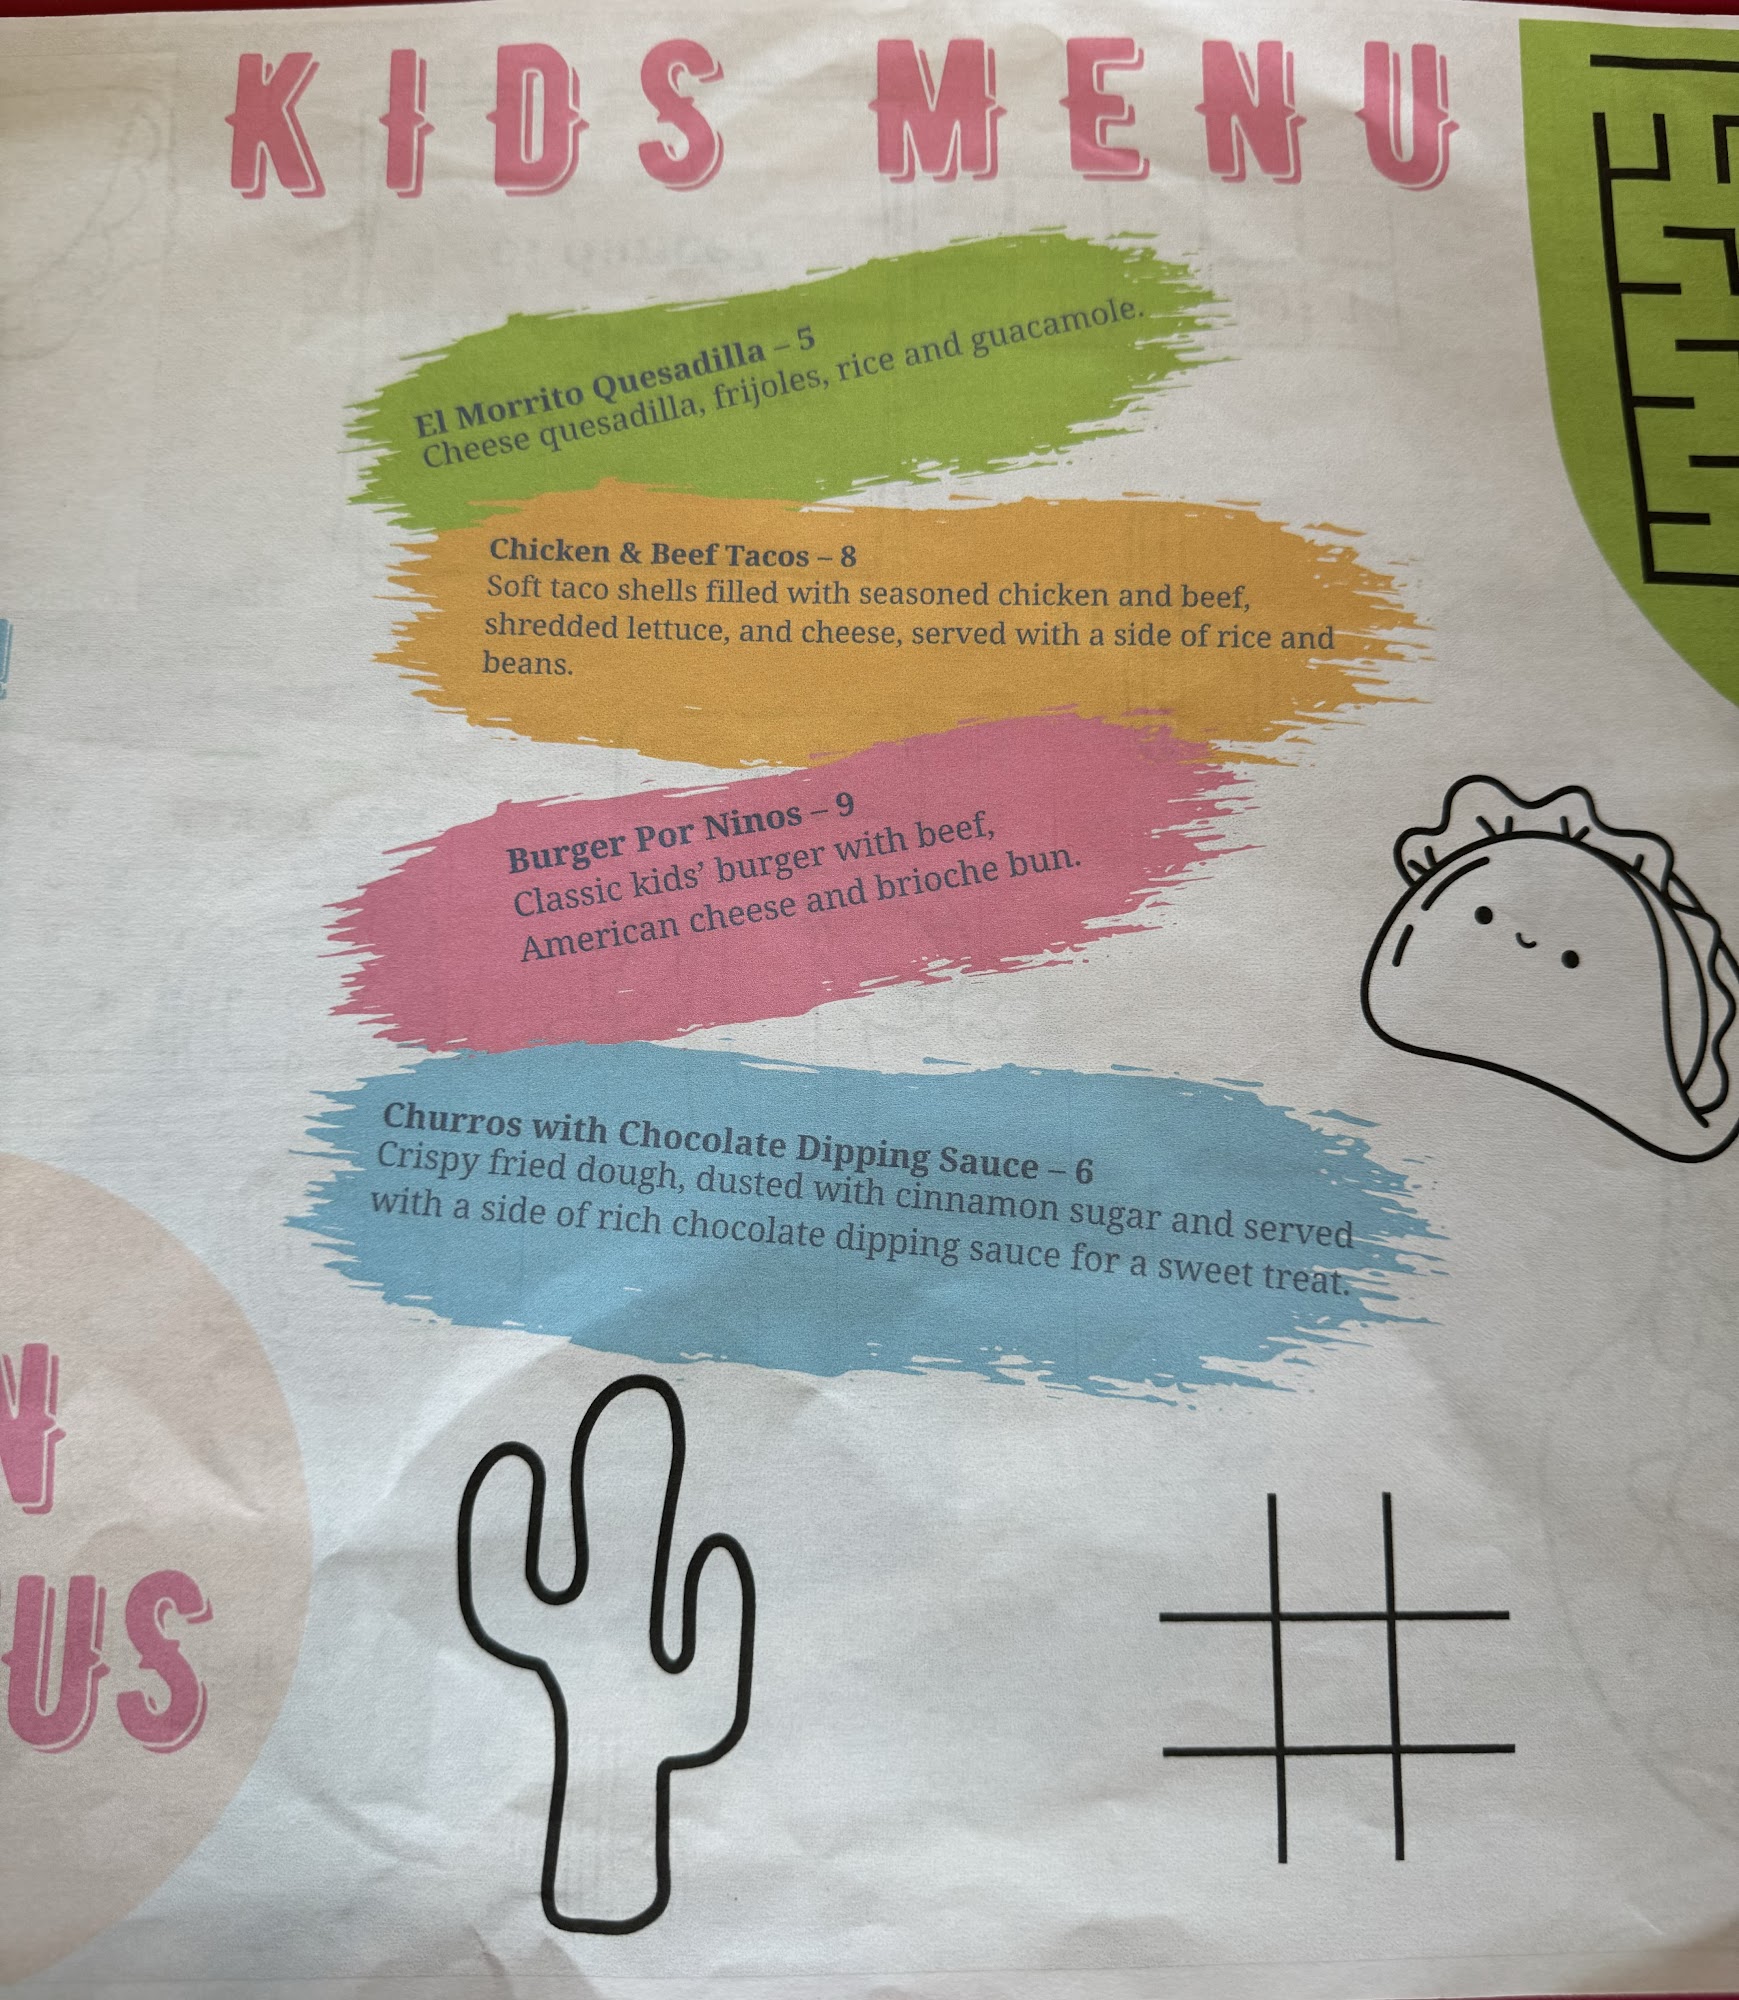 KIDS MENU
El Morrito Quesadilla – 5
Cheese quesadilla, frijoles, rice and guacamole.
Chicken & Beef Tacos – 8
Soft taco shells filled with seasoned chicken and beef,
shredded lettuce, and cheese, served with a side of rice and
beans.
Burger Por Ninos – 9
Classic kids’ burger with beef,
American cheese and brioche bun.
Churros with Chocolate Dipping Sauce – 6
Crispy fried dough, dusted with cinnamon sugar and served
with a side of rich chocolate dipping sauce for a sweet treat.
N
US